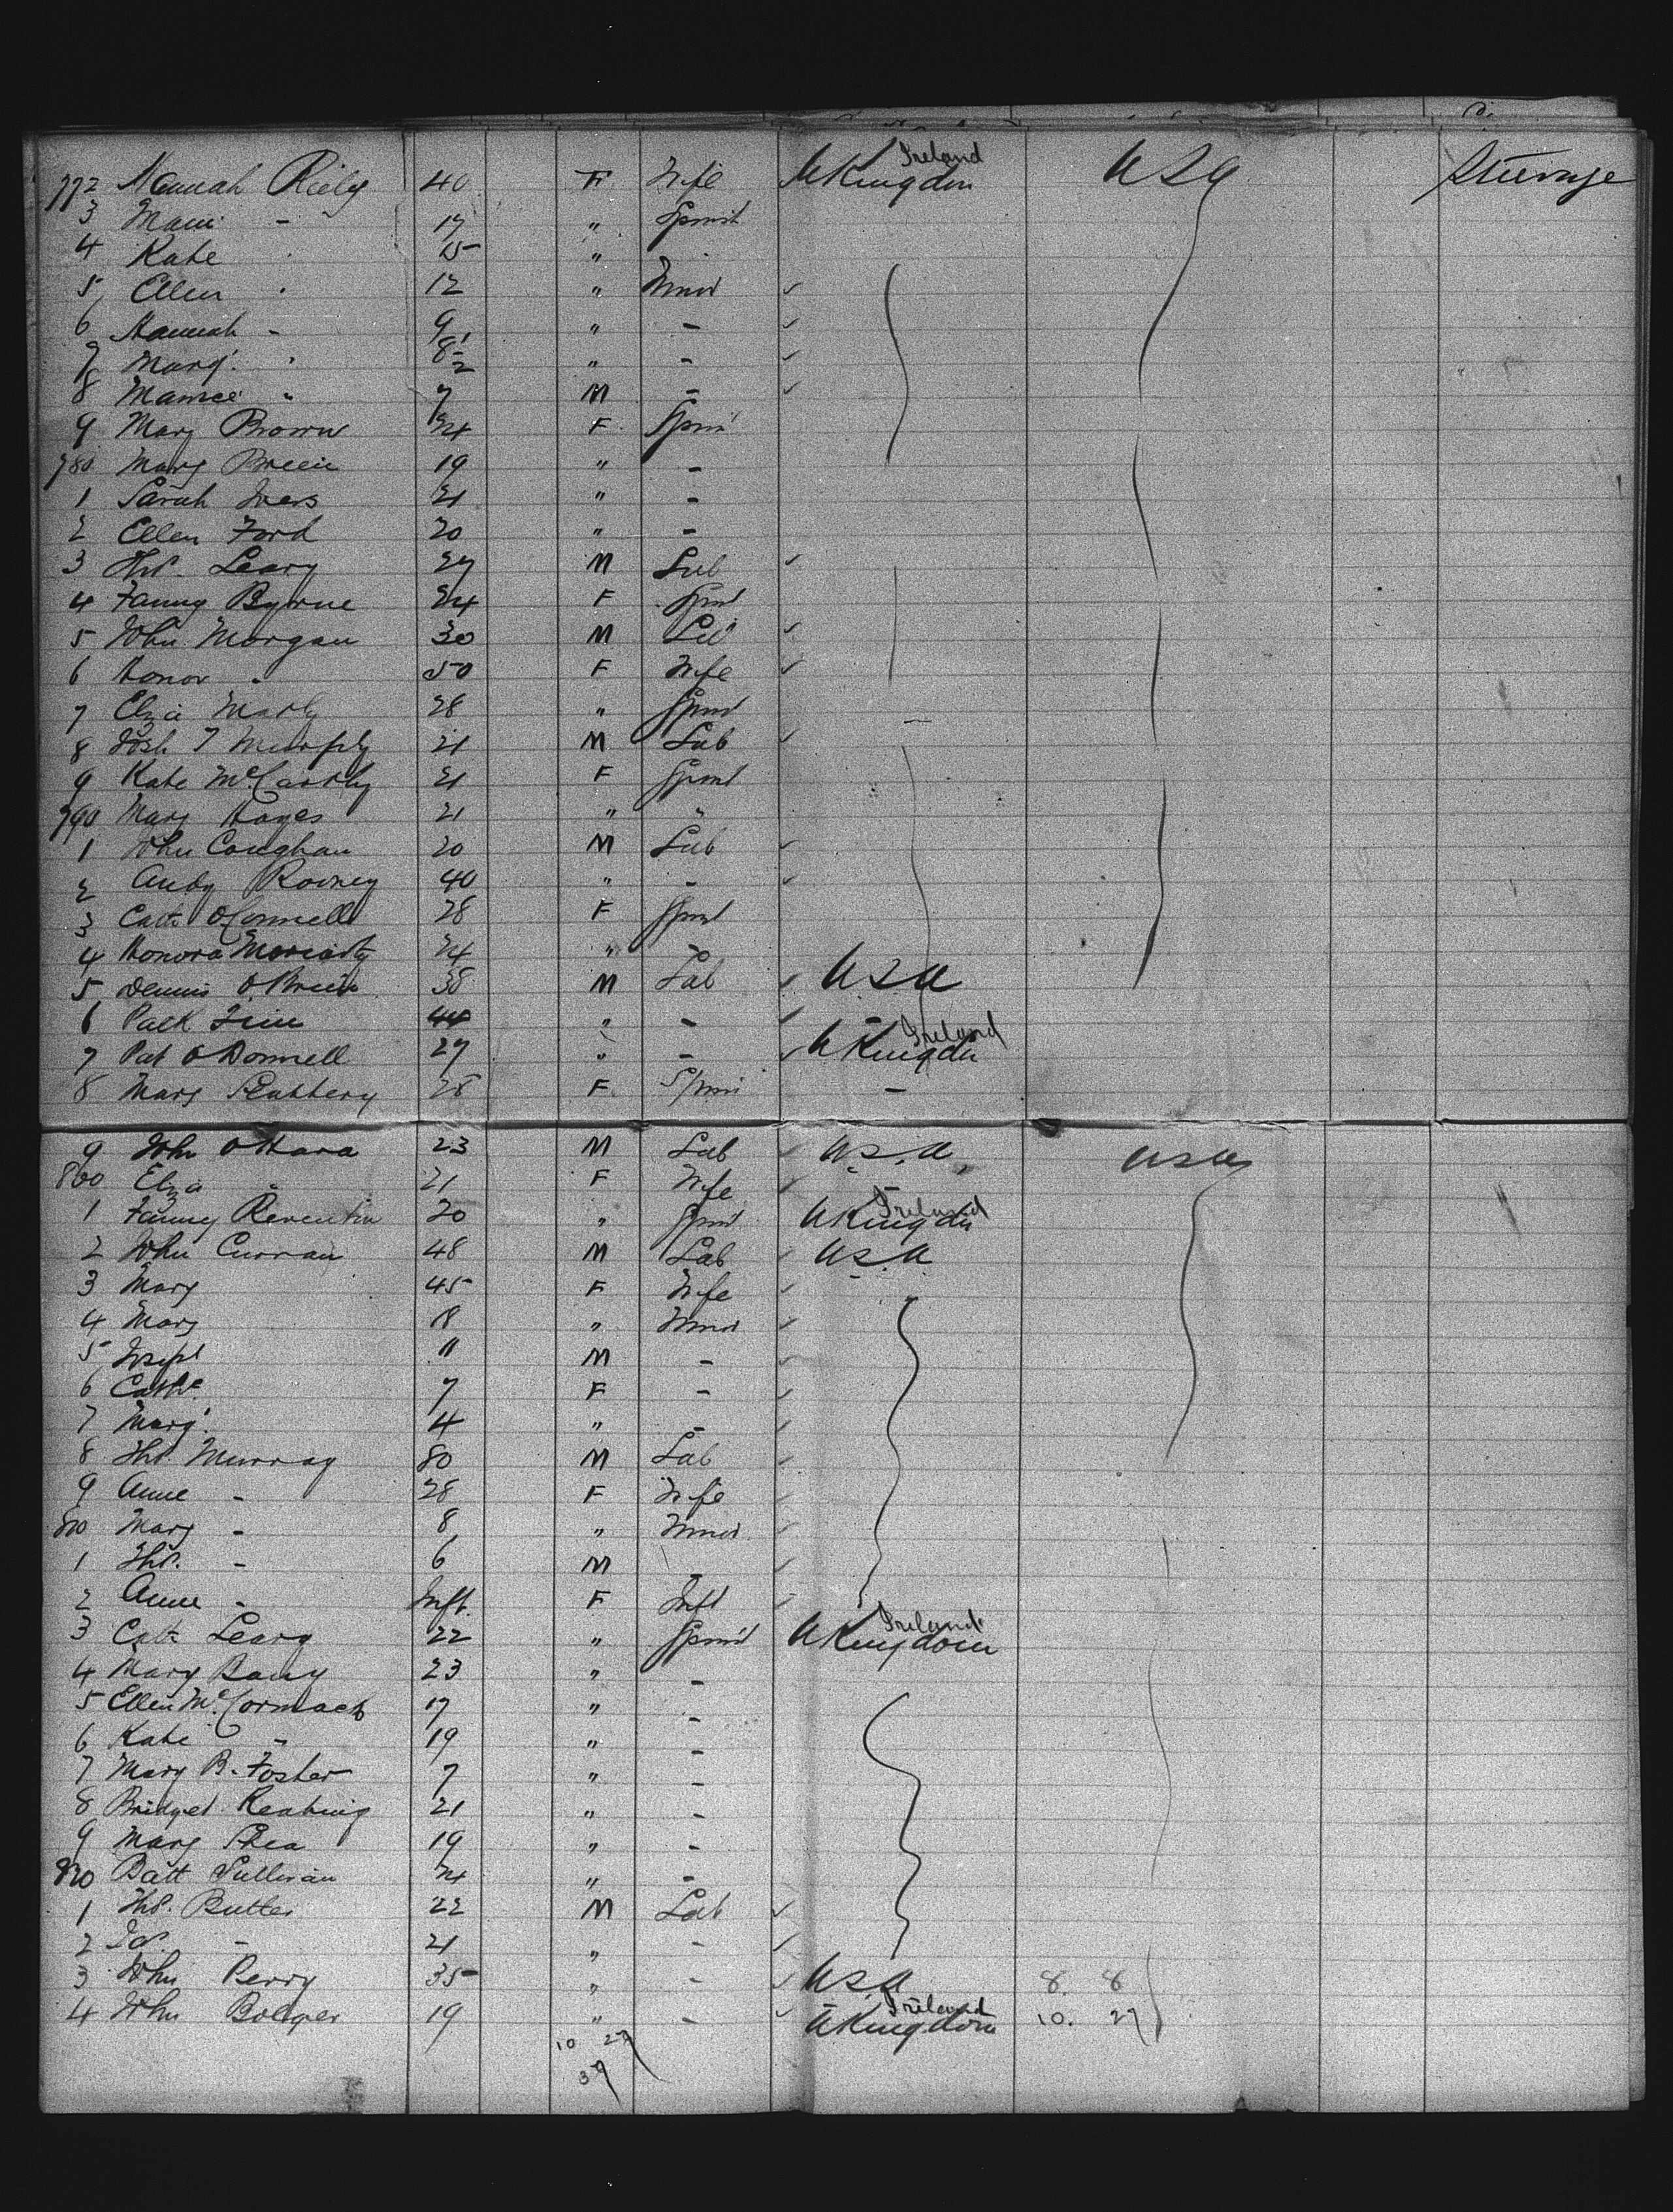 772 Hannah Riely 40 F Wife UKingdm Ireland USA Steerage
3 - 17 " Spinst
4 Kate 15 "
5 Ellen 12 " Minor
6 Hannah - 9 " -
7 Margt " -
8 Maurice " 7 M -
9 Mary Brown 24 F Spin
780 Mary Breen 19 " -
1 Sarah Ivers 21 " -
2 Ellen Ford 20 " -
3 Thos. Leary 27 M Lab
4 Fanny Byrne 24 F Spinst
5 John Morgan 30 M Lab
6 Honor " 50 F Wife
7 Eliza 28 " Spinst
8 Josh T Murphy 21 M Lab
9 Kate McCarthy 21 F Spinst
790 Mary Hayes 21 " "
1 John Coughan 20 M Lab
2 Andy Rooney 40 " -
3 Cath OConnell 28 F Spinst
4 Honora Moriarty 24 " -
5 Dennis O.Brien 38 M Lab USA
6 44 " - -
7 Pat ODonnell 27 " - UKingdm Ireland
8 Mary Slattery 28 F Spins -
9 John OHara 23 M Lab U.S.A. USA
800 Eliza " 21 F Wife -
1 Fanny 20 " Spinst UKingdm Ireland
2 John Curran 48 M Lab U.S.A
3 Mary 45 F Wife
4 Mary " Minor
5 Joseph 11 M -
6 Cathe 7 F -
7 Margt 4 " -
8 Thos. Murray 30 M Lab
9 Anne - 28 F Wife
810 Mary - 8 " Minor
1 Thos. - 6 M -
2 Anne - Inft. F Inft
3 Cath Leary 22 " Spinst UKingdom Ireland
4 Mary 23 " -
5 Ellen McCormack 17 " -
6 Kate " 19 " -
7 Mary B. Foster 7 " -
8 Bridget Keating 21 " -
9 Mary Shea 19 " -
820 Batt Sullivan 24 " -
1 Thos. Butler 22 M Lab
2 - 21 " -
3 John Perry 35 " - USA 8. 8
4 John Bolger 19 " - UKingdom Ireland 10. 27
10 27
37